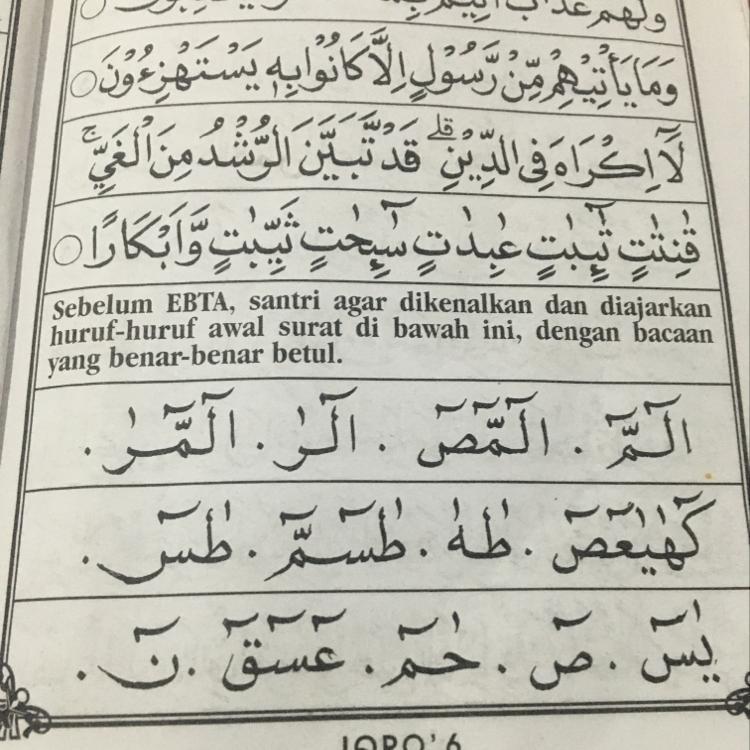 وَلَهُمْ عَذَابٌ اَلِيْمٌ
وَمَا يَأْتِيْهِمْ مِّنْ رَّسُوْلٍ اِلَّا كَانُوْا بِهٖ يَسْتَهْزِءُوْنَ
لَآ اِكْرَاهَ فِى الدِّيْنِۗ قَدْ تَّبَيَّنَ الرُّشْدُ مِنَ الْغَيِّۚ
قٰنِتٰتٍ تٰٓئِبٰتٍ عٰبِدٰتٍ سٰٓئِحٰتٍ ثَيِّبٰتٍ وَّاَبْكَارًا
Sebelum EBTA, santri agar dikenalkan dan diajarkan
huruf-huruf awal surat di bawah ini, dengan bacaan
yang benar-benar betul.
الٓمّٓ . الٓمّٓصٓ . الٓرٰ . الٓمّٓرٰ .
كٓهٰيٰعٓصٓ . طٰهٰ . طٰسٓمّٓ . طٰسٓ .
يٰسٓ . صٓ . حٰمٓ . عٓسٓقٓ . نٓ .
IQRO' 6